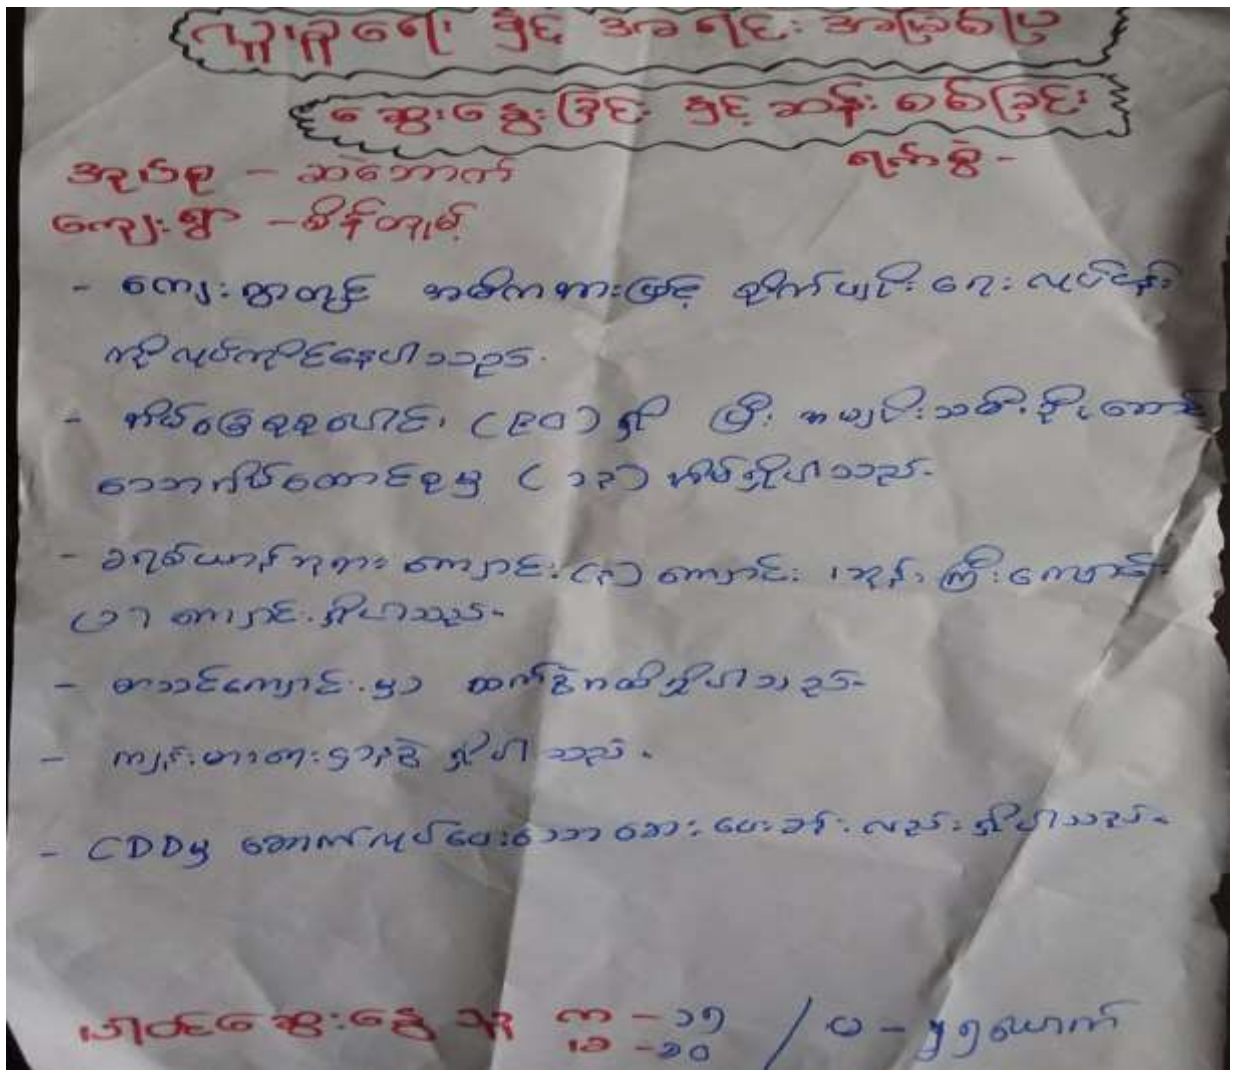 လူမှုရေး နှင့် အရင်း အမြစ်ပြ
ဆွေးနွေးခြင်း နှင့် ဆန်းစစ်ခြင်း
အုပ်စု - ဆဲဘောက်
ရက်စွဲ -
ကျေးရွာ - စိန်တျမ့်
- ကျေးရွာတွင် အဓိကအားဖြင့် စိုက်ပျိုးရေးလုပ်ငန်း
ကိုလုပ်ကိုင်နေပါသည်.
- အိမ်ခြေစုစုပေါင်း (၉၀) ရှိ ပြီး အမျိုးသမီး ဦး
သောအိမ်ထောင်စုမှ (၁၃) အိမ်ရှိပါသည်.
- ခရစ်ယာန်ဘုရား ကျောင်း (၃) ကျောင်း ၊ ဘုန်းကြီးကျောင်း
(၁) ကျောင်းရှိပါသည်.
- စာသင်ကျောင်းမှာ ထက်ခွဲအထိရှိပါသည်.
- ကျန်းမာရေးဌာနခွဲ ရှိပါသည်.
- CDDမှ ဆောက်လုပ်ပေးသော ဆေးပေးခန်းလည်းရှိပါသည်.
ပါဝင်ဆွေးနွေးသူ က - ၁၅ / ပ - ၅၅ယောက်
ခ - ၁၀